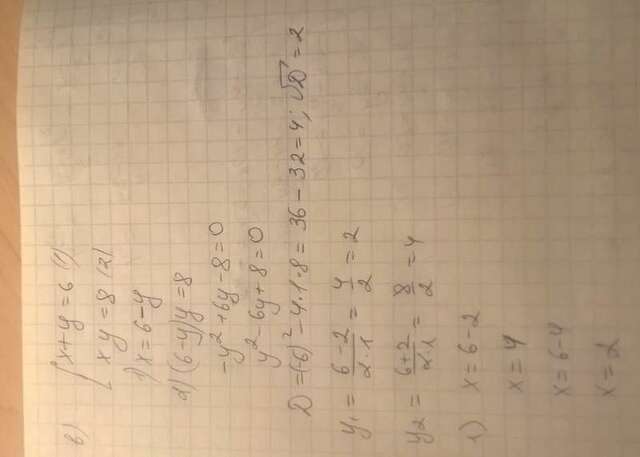 в) { x+y=6 (1)
xy=8 (2)
1) x=6-y
2) (6-y)y=8
-y²+6y-8=0
y²-6y+8=0
D=(-6)²-4·1·8=36-32=4; √D=2
y₁ = (6-2)/(2·1) = 4/2 = 2
y₂ = (6+2)/(2·1) = 8/2 = 4
1) x=6-2
x=4
x=6-4
x=2